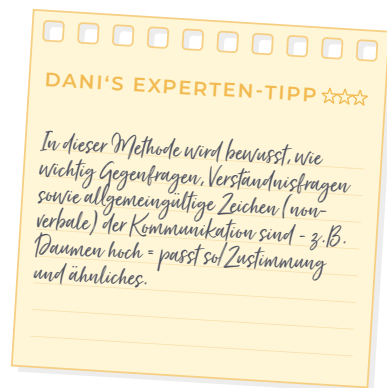 DANI'S EXPERTEN-TIPP
In dieser Methode wird bewusst, wie
wichtig Gegenfragen, Verständnisfragen
sowie allgemeingültige Zeichen (non-
verbale) der Kommunikation sind - z.B.
Daumen hoch = passt so/Zustimmung
und ähnliches.